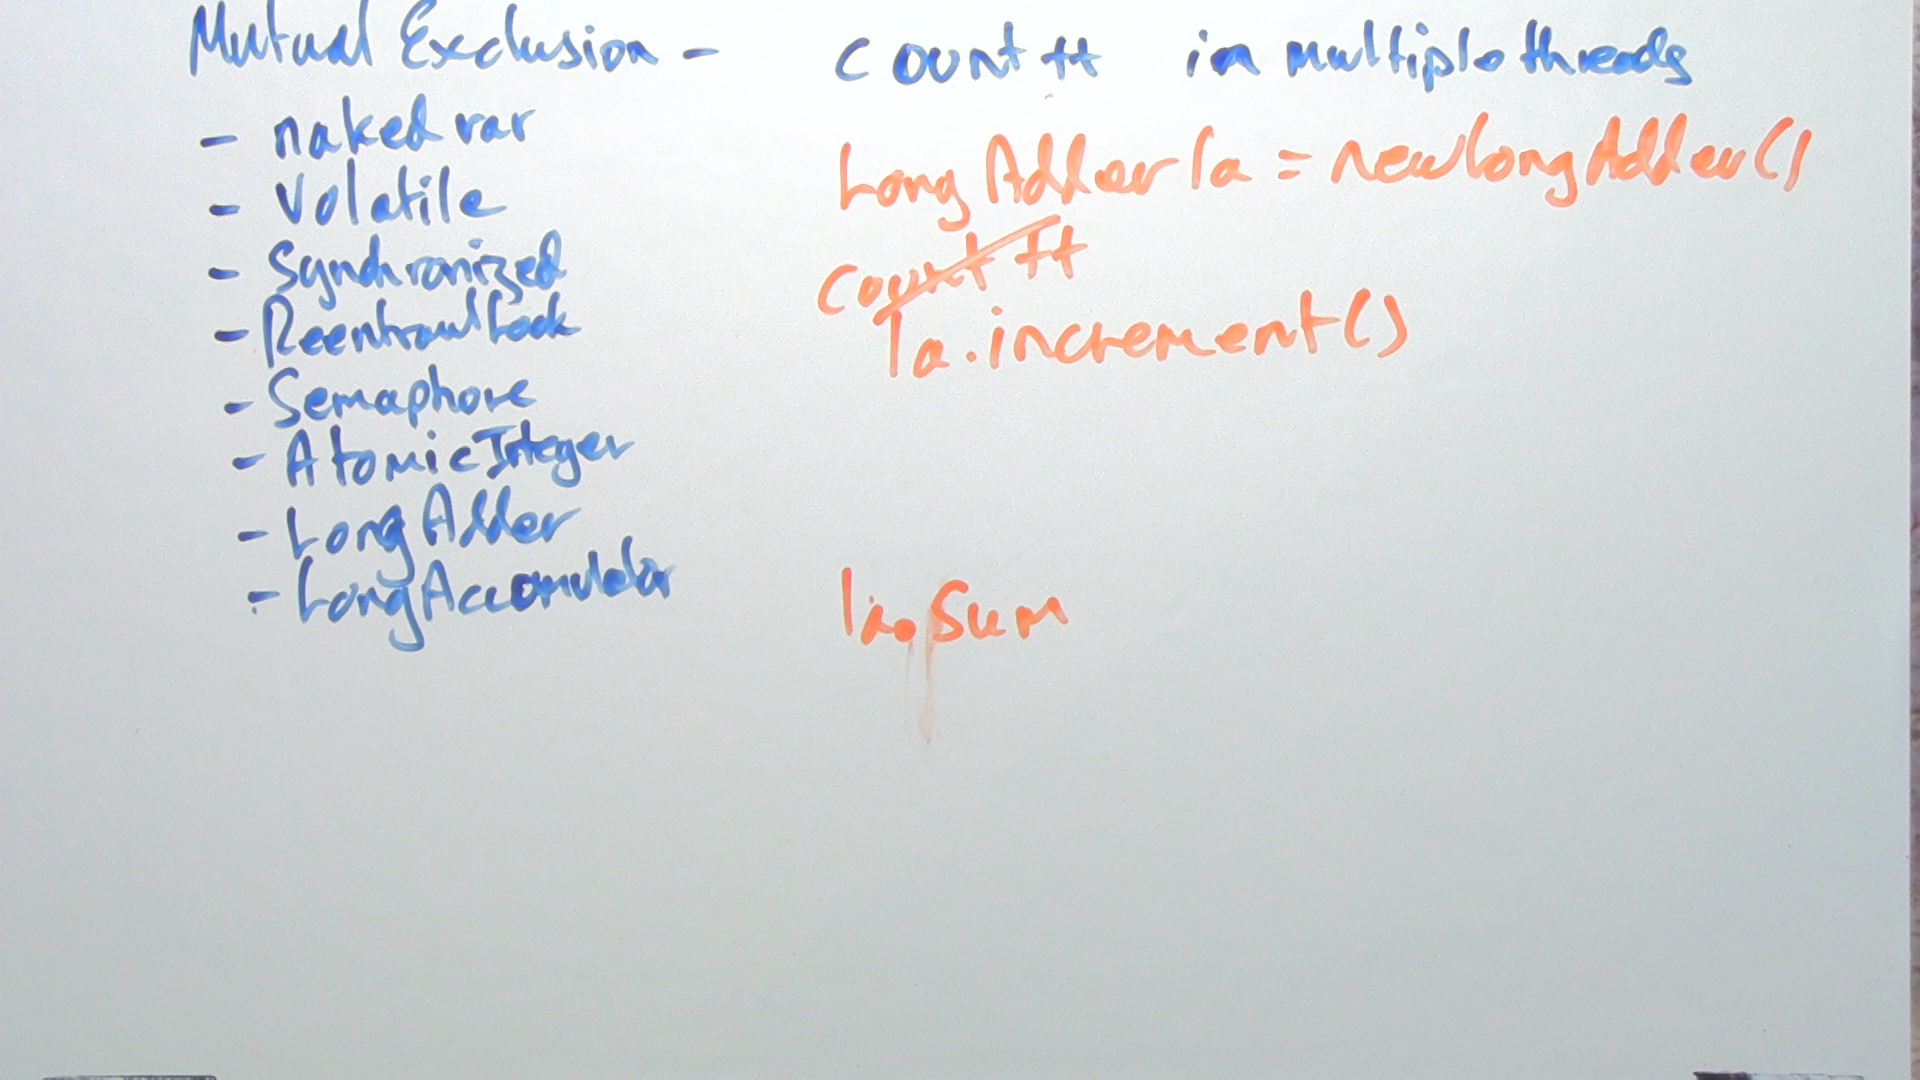 Mutual Exclusion - count ++ in multiple threads
- naked var
- Volatile
- Synchronized
- ReentrantLock
- Semaphore
- AtomicInteger
- LongAdder
- LongAccomulator
LongAdder la = new LongAdder()
count ++
la.increment()
la.sum